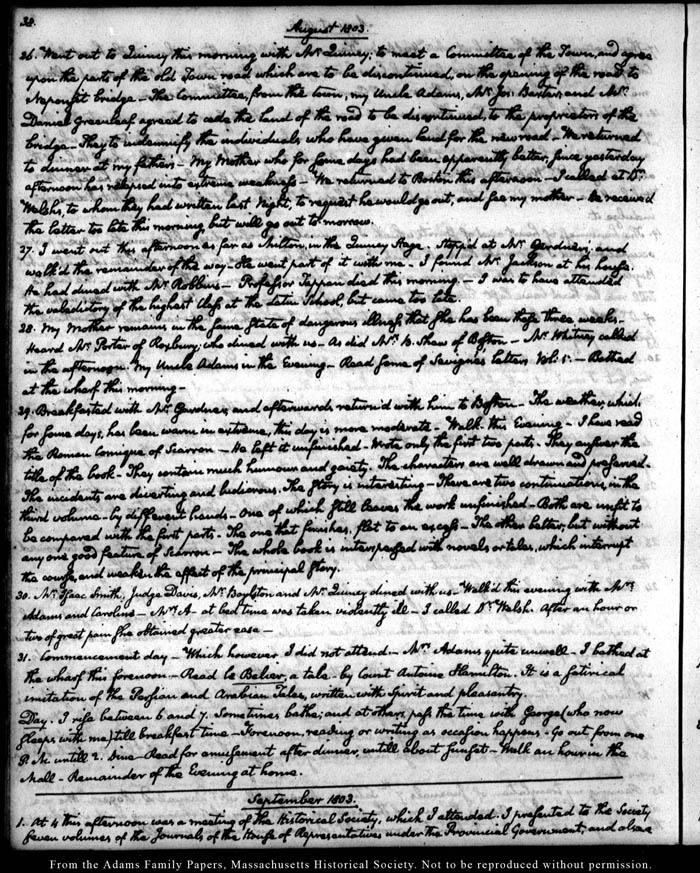 38.
August 1803.
26. Went out to Quincy this morning with Mr. Quincy; to meet a Committee of the Town, and agree
upon the parts of the old Town road which are to be discontinued, on the opening of the road to
Neponsit bridge — The Committee, from the town, my Uncle Adams, Mr. Jos: Baxter, and Mr.
Daniel Greenleaf agreed to cede the land of the road to be discontinued, to the proprietors of the
bridge — They to indemnify the individuals who have given land for the new road — We returned
to dinner at my father's — My Mother who for some days had been apparently better, since yesterday
afternoon has relapsed into extreme weakness — We returned to Boston this afternoon — I called at Dr.
Welsh's, to whom they had written last Night, to request he would go out, and see my mother — He received
the letter too late this morning, but will go out to-morrow.
27. I went out this afternoon as far as Milton, in the Quincy Stage. Stopp'd at Mr. Gardner's, and
walk'd the remainder of the way — He went part of it with me — I found Mr. Jackson at his house.
He had dined with Mr. Robbins — Professor Tappan died this morning — I was to have attended
the valedictory of the highest class at the Latin School, but came too late.
28. My Mother remains in the same state of dangerous illness, that she has been these three weeks —
Heard Mr. Porter of Roxbury; who dined with us — As did Mr. Shaw of Boston — Mr. Whitney called
in the afternoon. My Uncle Adams in the Evening — Read some of Sevigné's letters Vol: 5: — Bathed
at the wharf this morning —
29. Breakfasted with Mr. Gardner, and afterwards return'd with him to Boston — The weather, which
for some days, has been warm in extreme, this day is more moderate — Walk this Evening — I have read
the Roman Comique of Scarron — He left it unfinished — Wrote only the first two parts. They answer the
title of the book — They contain much humour and gaiety. The characters are well drawn and preserved.
The incidents are diverting and ludicrous. The story is interesting — There are two continuations, in the
third volume — by different hands — One of which still leaves the work unfinished — Both are unfit to
be compared with the first parts — The one that finishes, flat to an excess — The other better; but without
any one good feature of Scarron — The whole book is interspersed with novels or tales, which interrupt
the course, and weaken the effect of the principal story.
30. Mr. Isaac Smith, Judge Davis, Mr. Boylston and Mr. Quincy dined with us — Walk'd this evening with Mrs.
Adams and Caroline — Mrs. A — at bed time was taken violently ill — I called Dr. Welsh. After an hour or
two of great pain she obtained greater ease —
31. Commencement day — Which however I did not attend — Mrs. Adams quite unwell. I bathed at
the wharf this forenoon — Read Le Belier, a tale — by Count Antoine Hamilton. It is a satirical
imitation of the Persian and Arabian Tales, written with spirit and pleasantry.
Day. I rise between 6 and 7. Sometimes bathe; and at others, pass the time with George (who now
sleeps with me) till breakfast time — Forenoon, reading or writing as occasion happens — Go out from one
P.M. untill 2. Dine — Read for amusement after dinner, untill about sunset — Walk an hour in the
Mall — Remainder of the Evening at home.
September 1803.
1. At 4 this afternoon was a meeting of the Historical Society, which I attended. I presented to the Society
seven volumes of the Journals of the House of Representatives under the Provincial Government, and also a
From the Adams Family Papers, Massachusetts Historical Society. Not to be reproduced without permission.